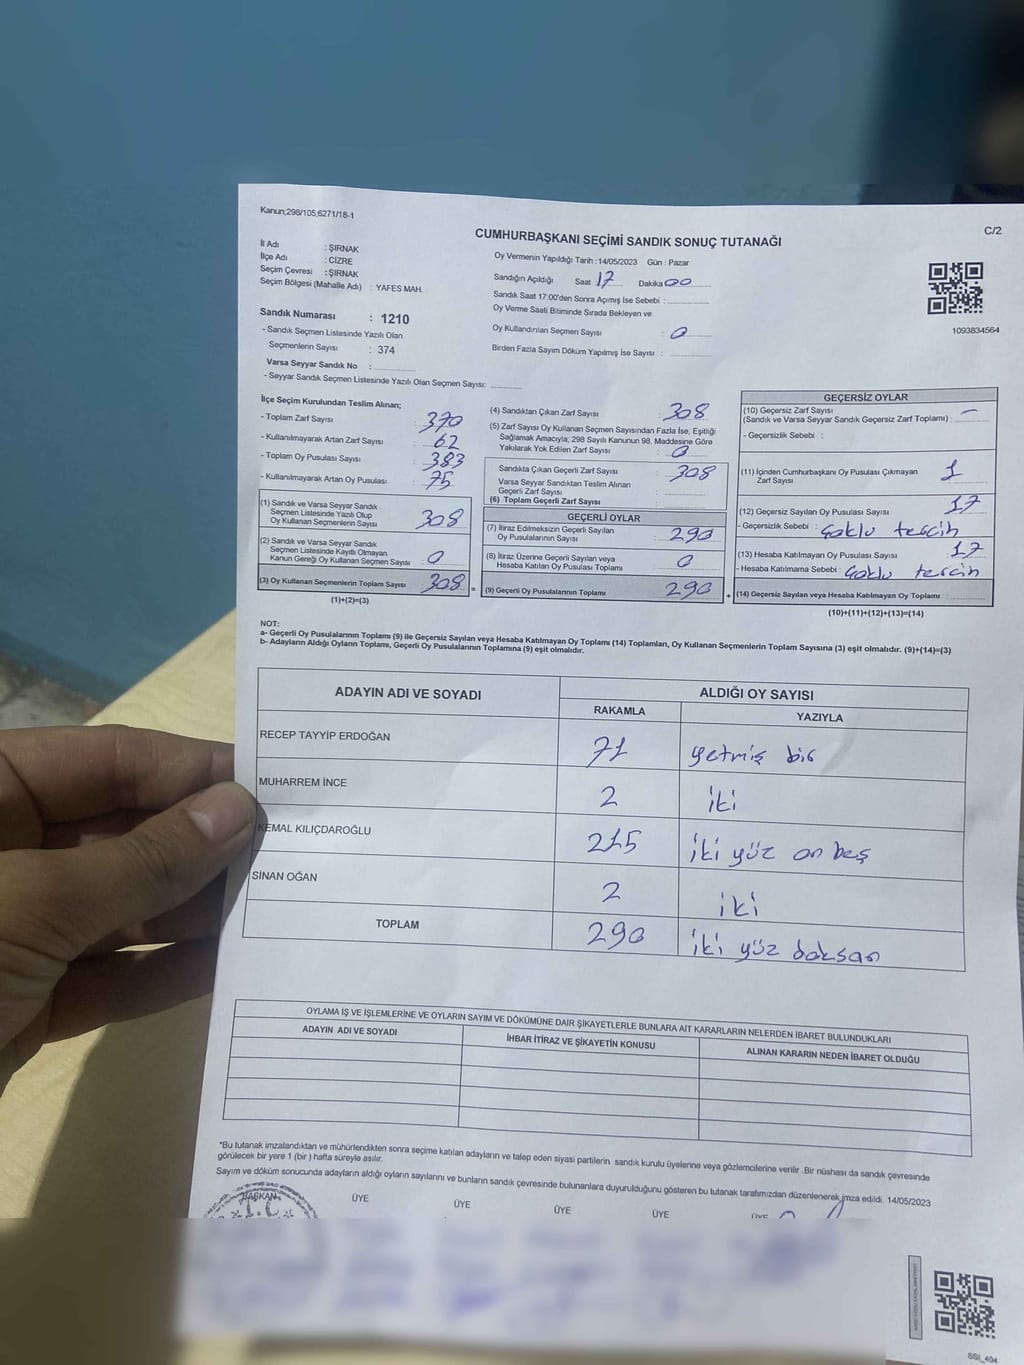 Kanun;298/105;6271/18-1
C/2
CUMHURBAŞKANI SEÇİMİ SANDIK SONUÇ TUTANAĞI
İl Adı : ŞIRNAK
İlçe Adı : CİZRE
Seçim Çevresi : ŞIRNAK
Seçim Bölgesi (Mahalle Adı) : YAFES MAH.
Sandık Numarası : 1210
- Sandık Seçmen Listesinde Yazılı Olan
Seçmenlerin Sayısı : 374
Varsa Seyyar Sandık No :
- Seyyar Sandık Seçmen Listesinde Yazılı Olan Seçmen Sayısı:
Oy Vermenin Yapıldığı Tarih :14/05/2023 Gün : Pazar
Sandığın Açıldığı Saat 17 Dakika 00
Sandık Saat 17:00'den Sonra Açımış İse Sebebi :
Oy Verme Saati Bitiminde Sırada Bekleyen ve
Oy Kullandırılan Seçmen Sayısı : 0
Birden Fazla Sayım Döküm Yapılmış İse Sayısı :
1093834564
İlçe Seçim Kurulundan Teslim Alınan;
- Toplam Zarf Sayısı : 370
- Kullanılmayarak Artan Zarf Sayısı : 62
- Toplam Oy Pusulası Sayısı : 383
- Kullanılmayarak Artan Oy Pusulası : 75
(1) Sandık ve Varsa Seyyar Sandık
Seçmen Listesinde Yazılı Olup
Oy Kullanan Seçmenlerin Sayısı : 308
(2) Sandık ve Varsa Seyyar Sandık
Seçmen Listesinde Kayıtlı Olmayan
Kanun Gereği Oy Kullanan Seçmen Sayısı : 0
(3) Oy Kullanan Seçmenlerin Toplam Sayısı : 308
(1)+(2)=(3)
(4) Sandıktan Çıkan Zarf Sayısı : 308
(5) Zarf Sayısı Oy Kullanan Seçmen Sayısından Fazla İse, Eşitliği
Sağlamak Amacıyla; 298 Sayılı Kanunun 98. Maddesine Göre
Yakılarak Yok Edilen Zarf Sayısı : 0
Sandıkta Çıkan Geçerli Zarf Sayısı : 308
Varsa Seyyar Sandıktan Teslim Alınan
Geçerli Zarf Sayısı :
(6) Toplam Geçerli Zarf Sayısı :
GEÇERLİ OYLAR
(7) İtiraz Edilmeksizin Geçerli Sayılan
Oy Pusulalarının Sayısı : 290
(8) İtiraz Üzerine Geçerli Sayılan veya
Hesaba Katılan Oy Pusulası Toplamı : 0
= (9) Geçerli Oy Pusulalarının Toplamı : 290
GEÇERSİZ OYLAR
(10) Geçersiz Zarf Sayısı
(Sandık ve Varsa Seyyar Sandık Geçersiz Zarf Toplamı) : —
- Geçersizlik Sebebi :
(11) İçinden Cumhurbaşkanı Oy Pusulası Çıkmayan
Zarf Sayısı : 1
(12) Geçersiz Sayılan Oy Pusulası Sayısı : 17
- Geçersizlik Sebebi : Çoklu tercih
(13) Hesaba Katılmayan Oy Pusulası Sayısı : 17
- Hesaba Katılmama Sebebi : Çoklu tercih
+ (14) Geçersiz Sayılan veya Hesaba Katılmayan Oy Toplamı :
(10)+(11)+(12)+(13)=(14)
NOT:
a- Geçerli Oy Pusulalarının Toplamı (9) ile Geçersiz Sayılan veya Hesaba Katılmayan Oy Toplamı (14) Toplamları, Oy Kullanan Seçmenlerin Toplam Sayısına (3) eşit olmalıdır. (9)+(14)=(3)
b- Adayların Aldığı Oyların Toplamı, Geçerli Oy Pusulalarının Toplamına (9) eşit olmalıdır.
ADAYIN ADI VE SOYADI
ALDIĞI OY SAYISI
RAKAMLA YAZIYLA
RECEP TAYYİP ERDOĞAN 71 yetmiş bir
MUHARREM İNCE 2 iki
KEMAL KILIÇDAROĞLU 215 iki yüz on beş
SİNAN OĞAN 2 iki
TOPLAM 290 iki yüz doksan
OYLAMA İŞ VE İŞLEMLERİNE VE OYLARIN SAYIM VE DÖKÜMÜNE DAİR ŞİKAYETLERLE BUNLARA AİT KARARLARIN NELERDEN İBARET BULUNDUKLARI
ADAYIN ADI VE SOYADI İHBAR İTİRAZ VE ŞİKAYETİN KONUSU ALINAN KARARIN NEDEN İBARET OLDUĞU
*Bu tutanak imzalandıktan ve mühürlendikten sonra seçime katılan adayların ve talep eden siyasi partilerin sandık kurulu üyelerine veya gözlemcilerine verilir .Bir nüshası da sandık çevresinde
görülecek bir yere 1 (bir ) hafta süreyle asılır.
Sayım ve döküm sonucunda adayların aldığı oyların sayılarını ve bunların sandık çevresinde bulunanlara duyurulduğunu gösteren bu tutanak tarafımızdan düzenlenerek imza edildi. 14/05/2023
BAŞKAN ÜYE ÜYE ÜYE ÜYE ÜYE
T.C
SSİ_404